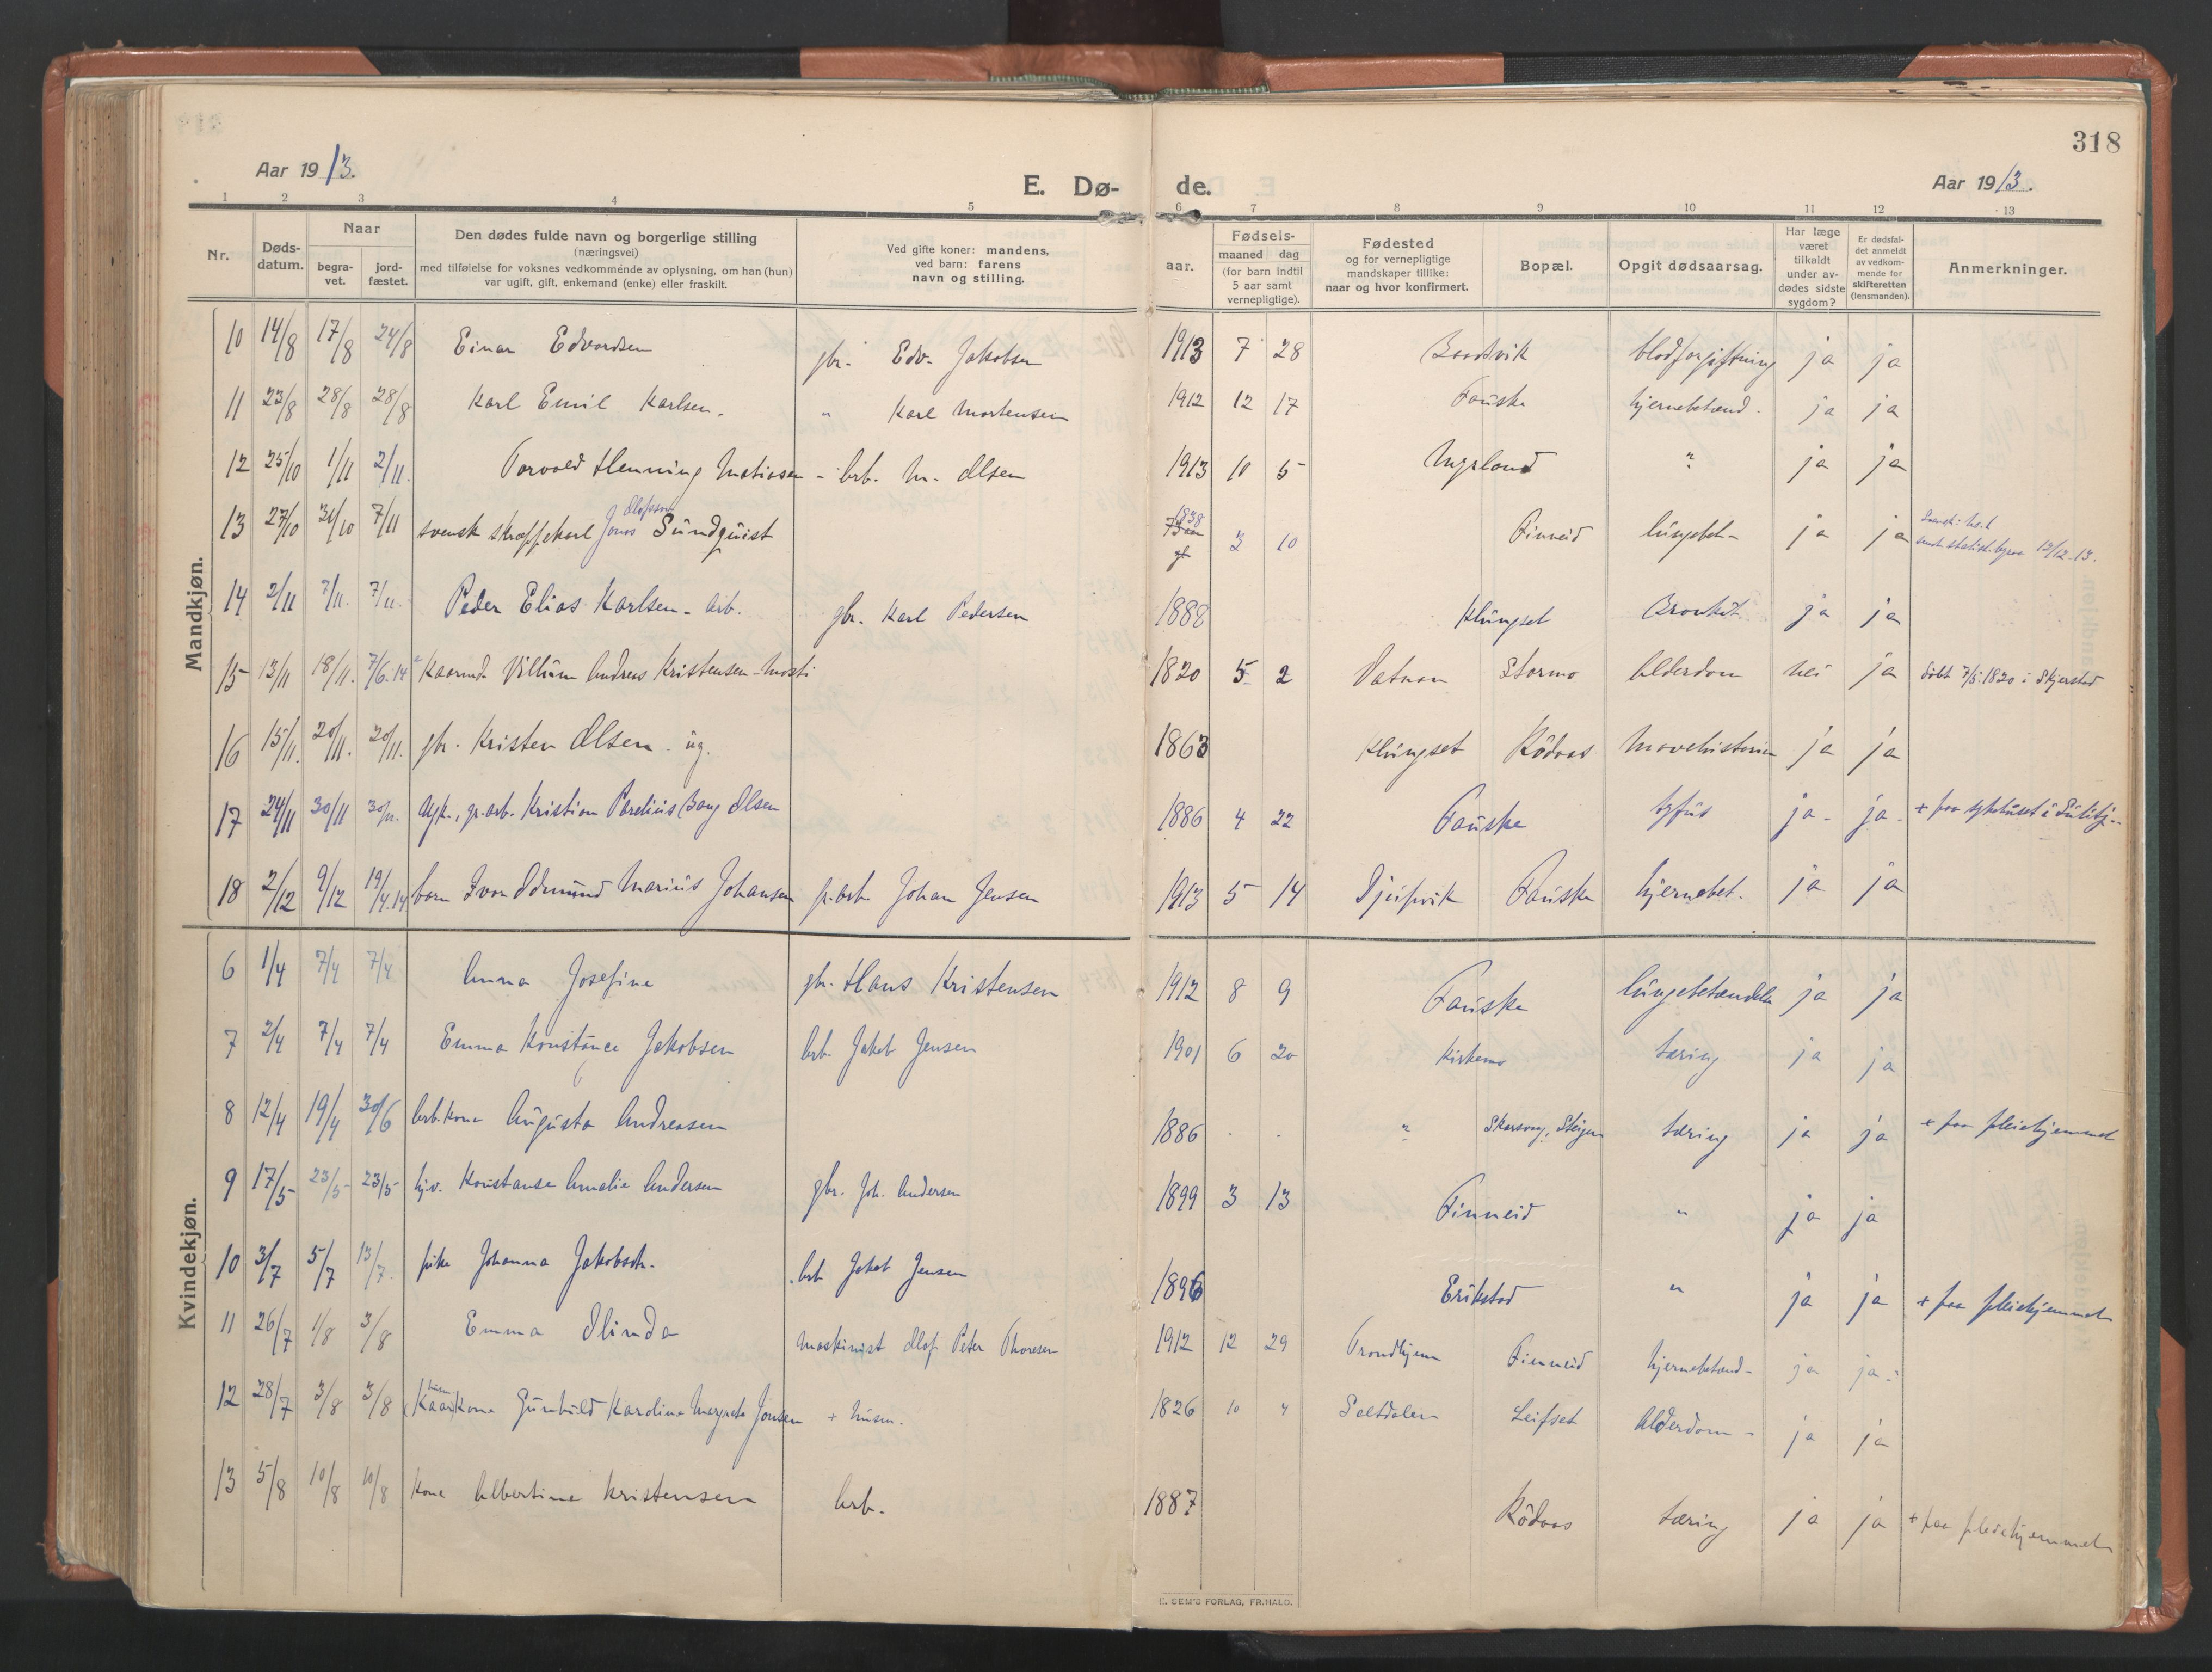 318
Aar 1913. E. Dø- de. Aar 1913.
1 2 3 4 5 6 7 8 9 10 11 12 13
Nr. Døds-datum. Naar begra-vet. jord-fæstet. Den dødes fulde navn og borgerlige stilling (næringsvei) med tilføielse for voksnes vedkommende av oplysning, om han (hun) var ugift, gift, enkemand (enke) eller fraskilt. Ved gifte koner: mandens, ved barn: farens navn og stilling. aar. Fødsels- maaned dag (for barn indtil 5 aar samt vernepligtige). Fødested og for vernepligtige mandskaper tillike: naar og hvor konfirmert. Bopæl. Opgit dødsaarsag. Har læge været tilkaldt under av-dødes sidste sygdom? Er dødsfal-det anmeldt av vedkom-mende for skifteretten (lensmanden). Anmerkninger.
Mandkjøn.
10 14/8 17/8 24/8 Einar Edvardsen gbr. Edv. Jakobsen 1913 7 28 blodforgiftning ja ja
11 23/8 28/8 28/8 Karl Emil Karlsen. " Karl Mortensen 1912 12 17 Fauske hjernebetænd. ja ja
12 25/10 1/11 2/11. Torvald Henning Matiasen - arb. M. Olsen 1913 10 5 " ja ja
13 27/10 31/10 7/11 svensk skræppekarl Jonas Olofsson Sundquist 1838 3 10 Finneid lungebet- ja ja 12/12 13.
14 2/11 7/11. 7/11. Peder Elias Karlsen - arb. gbr. Karl Pedersen 1888 Klungset Bronkit ja ja
15 13/11 18/11. 7/6.14 Kaarmd. Villum Andreas Kristensen - Mosti 1820 5 2 Vatnan Stormo Alderdom nei ja døbt 7/5 1820 i Skjerstad
16 15/11. 20/11. 20/11. gbr. Kristen Olsen - ug. 1863 Klungset Rödaas ja ja
17 24/11 30/11 30/11. gr.arb. Kristian Parelius Bang Olsen 1886 4 22 Fauske tyfus ja - ja - + paa sykehuset i Sulitj..
18 2/12 9/12 19/4.14 barn Ivar Odmund Marius Johansen gr.arb Johan Jensen 1913 5 14 Djupvik Fauske hjernebet. ja ja
Kvindekjøn.
6 1/4 7/4 7/4 Anna Josefine gbr. Hans Kristensen 1912 8 9 Fauske lungebetændelse ja ja
7 2/4 7/4 7/4 Emma Konstance Jakobsen arb. Jakob Jensen 1901 6 20 Kirkemo tæring ja ja
8 12/4 19/4 30/6 Arb.kone Augusta Andreasen 1886 " Steigen tæring ja ja + paa pleiehjemmet
9 17/5 23/5 23/5 hj.v. Konstanse Amalie Andersen gbr. Joh. Andersen 1899 3 13 Finneid " ja ja
10 3/7 5/7 13/7. pike Johanna Jakobsdr. arb Jakob Jensen 1896 Erikstad " ja ja + paa pleiehjemmet
11 26/7 1/8 3/8 Emma Olinda Maskinist Olof Peter Thoresen 1912 12 29 Trondhjem Finneid hjernebetænd- ja ja
12 28/7 3/8 3/8 (Kaar)kone husm. Gunhild Karoline Margrete Jonsen + husm. 1826 10 4 Saltdalen Leifset Alderdom - ja ja
13 5/8 10/8 10/8 kone Albertine Kristensen arb. 1887 Rödaas tæring ja ja + paa pleiehjemmet
E. SEM'S FORLAG, FR.HALD.